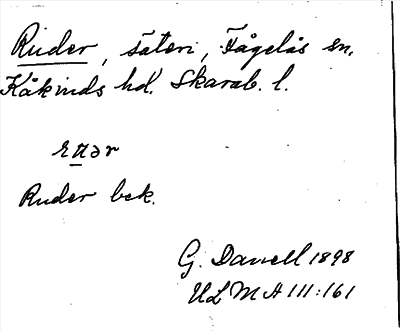 Ruder, säteri, Fågelås sn,
Kåkinds hd. Skarab. l.
Ruder bek.
G. Danell 1898
ULMA 111:161